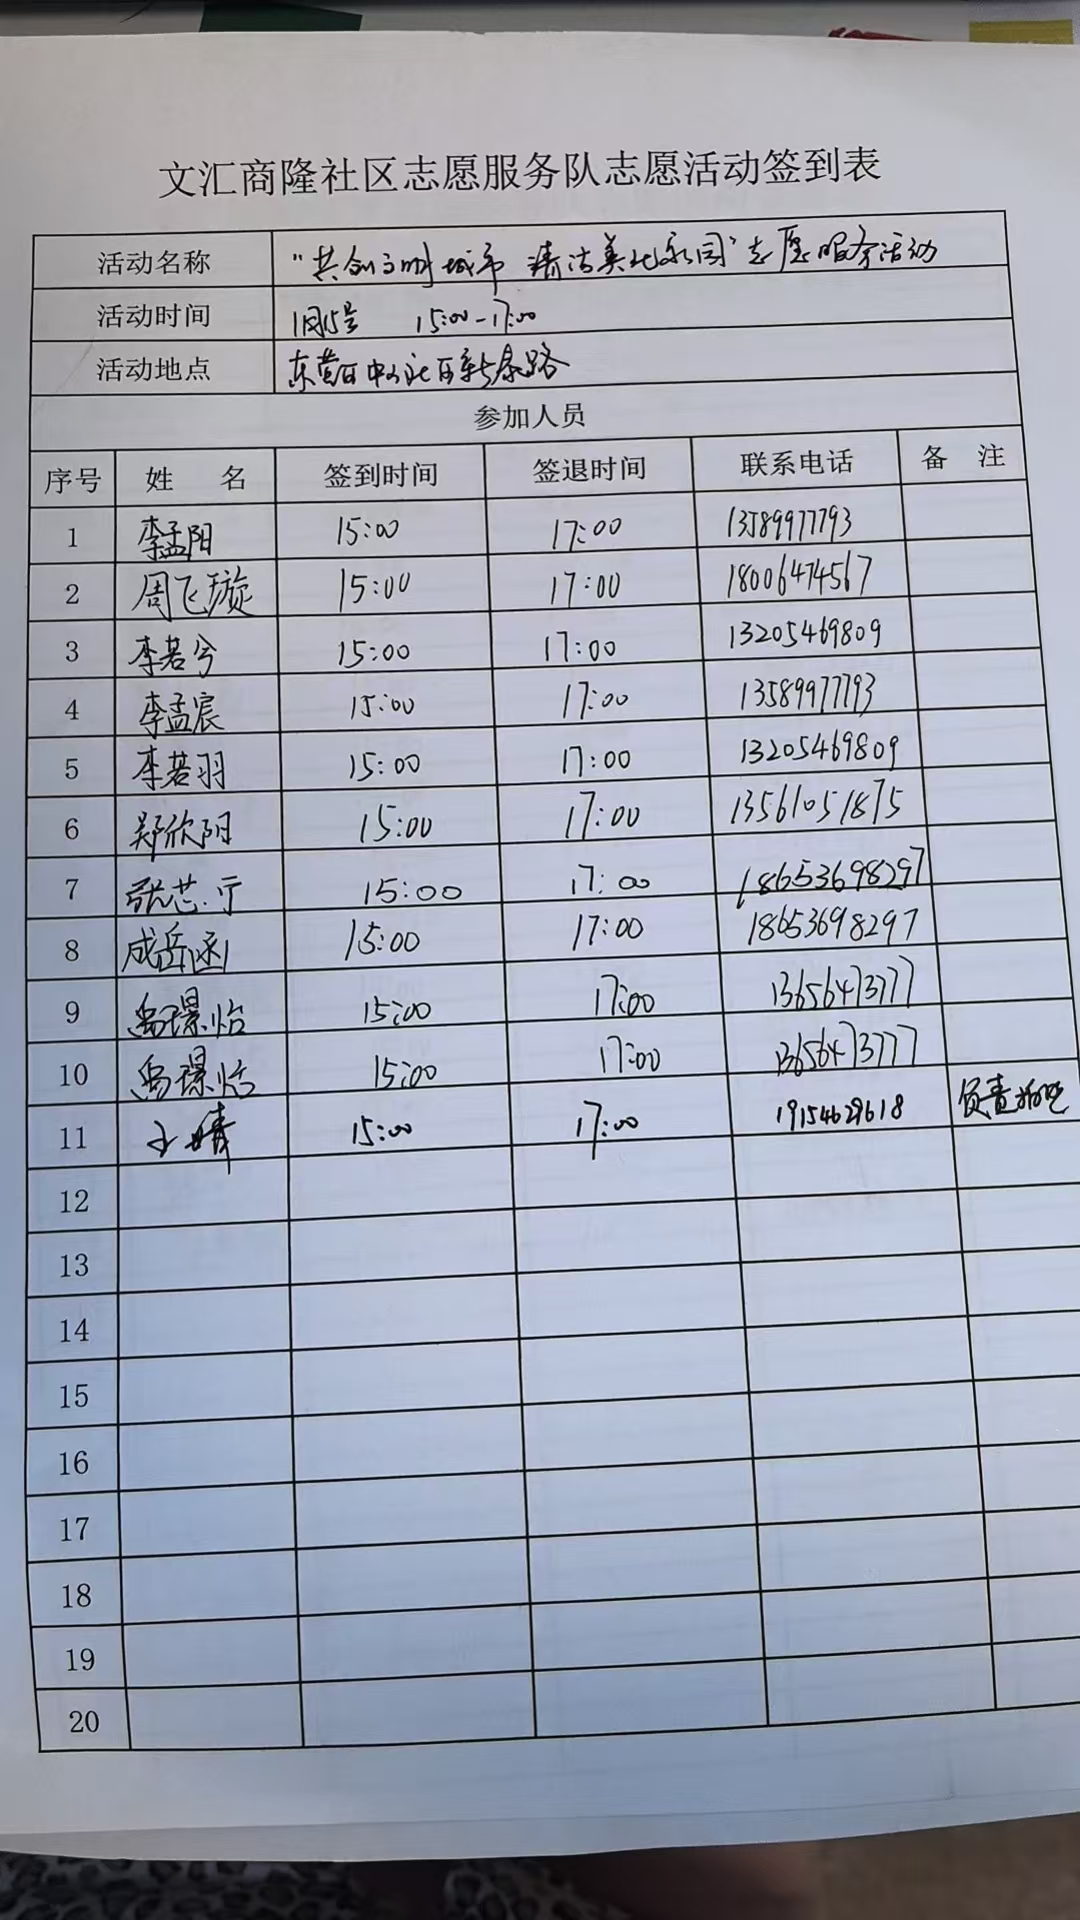 文汇商隆社区志愿服务队志愿活动签到表
活动名称 "共创文明城市 清洁美化家园"志愿服务活动
活动时间 1月15号 15:00-17:00
活动地点 东营区中心社区新泰路
参加人员
序号 姓 名 签到时间 签退时间 联系电话 备 注
1 李孟阳 15:00 17:00 13589977793
2 周飞璇 15:00 17:00 18006474567
3 李若兮 15:00 17:00 13205469809
4 李孟宸 15:00 17:00 13589977793
5 李若羽 15:00 17:00 13205469809
6 郑欣阳 15:00 17:00 13561051875
7 张芯宁 15:00 17:00 18653698297
8 成岳函 15:00 17:00 18653698297
9 15:00 17:00 13656473777
10 15:00 17:00 13656473777
11 王婧 15:00 17:00 19154629618 负责
12
13
14
15
16
17
18
19
20